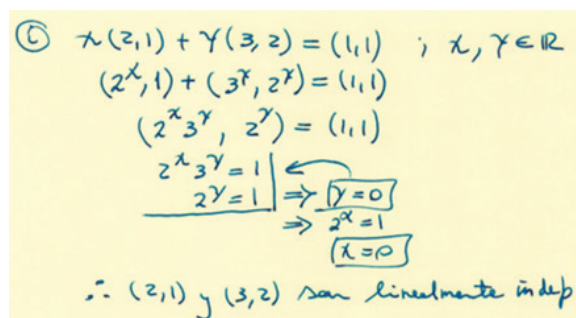 Ⓒ x(2,1) + y(3,2) = (1,1) ; x, y ∈ ℝ
(2ˣ,1) + (3ʸ, 2ʸ) = (1,1)
(2ˣ3ʸ, 2ʸ) = (1,1)
2ˣ3ʸ = 1 ←
2ʸ = 1 ⇒ y = 0
⇒ 2ˣ = 1
x = 0
∴ (2,1) y (3,2) son linealmente indep